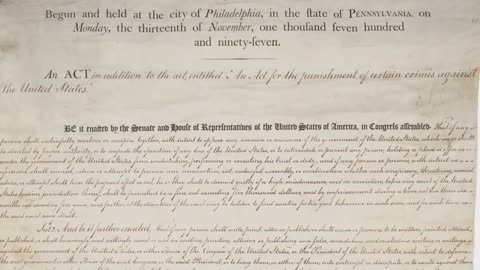 Begun and held at the city of Philadelphia, in the state of PENNSYLVANIA, on
Monday, the thirteenth of November, one thousand seven hundred
and ninety-seven.
An ACT in addition to the act, entitled "An Act for the punishment of certain crimes against
the United States."
BE it enacted by the Senate and House of Representatives of the United States of America, in Congress assembled, That if any
persons shall unlawfully combine or conspire together, with intent to oppose any measure or measures of the government of the United States, which are or shall
be directed by proper authority, or to impede the operation of any law of the United States, or to intimidate or prevent any person, holding a place or office in
under the government of the United States, from undertaking, performing or executing his trust or duty; and if any person or persons, with intent as
aforesaid, shall counsel, advise or attempt to procure any insurrection, riot, unlawful assembly or combination, whether such conspiracy, threatening, counsel
advice, or attempt shall have the proposed effect or not, he or they shall be deemed guilty of a high misdemeanor, and on conviction before any court of the United
States having jurisdiction thereof, shall be punished by a fine not exceeding five thousand dollars, and by imprisonment during a term not less than six
months
Sect. 2. And be it further enacted, That if any person shall write, print, utter or publish, or shall cause or procure to be written, printed, uttered
or published, or shall knowingly and willingly assist or aid in writing, printing, uttering or publishing any false, scandalous and malicious writing or writings
against the government of the United States, or either House of the Congress of the United States, or the President of the United States, with intent to defame